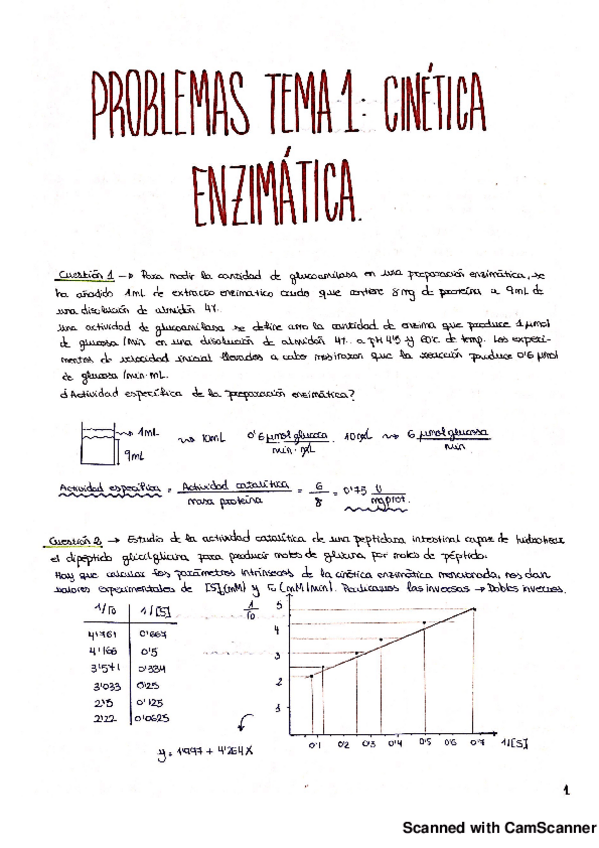 PROBLEMAS TEMA 1: CINÉTICA
ENZIMÁTICA.
Cuestión 1 → Para medir la cantidad de glucoamilasa en una preparación enzimática, se
ha añadido 1mL de extracto enzimático crudo que contiene 8mg de proteína a 9mL de
una disolución de almidón 4%.
Una actividad de glucoamilasa se define como la cantidad de enzima que produce 1 μmol
de glucosa /min en una disolución de almidón 4% a pH 4'5 y 60°C de temp. Los experi-
mentos de velocidad inicial llevados a cabo mostraron que la reacción produce 0'6 μmol
de glucosa /min·mL.
¿Actividad específica de la preparación enzimática?
1mL
9mL
10mL
0'6 μmol glucosa / min·mL · 10mL
6 μmol glucosa / min
Actividad específica = Actividad catalítica / masa proteína = 6/8 = 0'75 U/mg prot.
Cuestión 2 → Estudio de la actividad catalítica de una peptidasa intestinal capaz de hidrolizar
el dipéptido glicilglicina para producir moles de glicina por moles de péptido.
Hay que calcular los parámetros intrínsecos de la cinética enzimática mencionada, nos dan
valores experimentales de [S](mM) y r₀ (mM/min). Realizamos las inversas → Dobles inversos.
1/r₀ 1/[S]
4'761 0'667
4'166 0'5
3'571 0'334
3'033 0'25
2'5 0'125
2'22 0'0625
1/r₀
5
4
3
2
0'1 0'2 0'3 0'4 0'5 0'6 0'7 1/[S]
y = 1'997 + 4'264X
1
Scanned with CamScanner